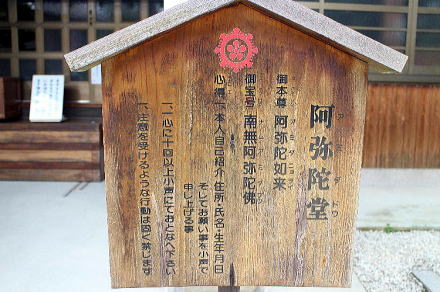 阿弥陀堂
アミダドウ
御本尊 阿弥陀如来
御宝号 南無阿弥陀佛
心得 一、本人自己紹介 住所・氏名・生年月日
そしてお願い事を小声で
申し上げる事
一、一心に十回以上小声にておとなへ下さい
一、注意を受けるような行動は固く禁じます